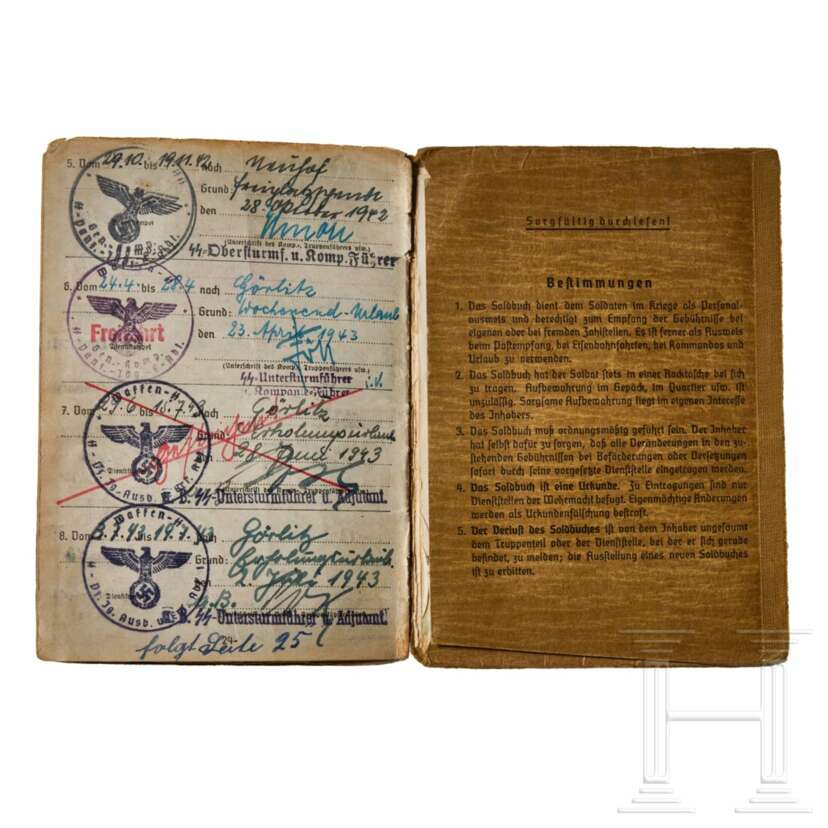 5. Vom 29.10. bis 19.11.42 nach Neuhof
Grund:
den 28. Oktober 1942
(Unterschrift des Komp., Truppenführers usw.)
SS-Obersturmf. u. Komp. Führer
6. Vom 24.4. bis 28.4 nach Görlitz
Freifahrt
Grund: Wochenend-Urlaub
Dienststempel
den 23. April 1943
(Unterschrift des Komp., Truppenführers usw.)
SS-Untersturmführer
u. Kompanie-Führer i.V.
7. Vom bis nach Görlitz
Grund: Erholungsurlaub
Juni 1943
SS-Untersturmführer u. Adjutant.
8. Vom bis 19.7.43 nach Görlitz
Grund: Erholungsurlaub
den 2. Juli 1943
SS-Untersturmführer u. Adjutant.
folgt Seite 25
Sorgfältig durchlesen!
Bestimmungen
1. Das Soldbuch dient dem Soldaten im Kriege als Personal-
ausweis und berechtigt zum Empfang der Gebührnisse bei
eigenen oder bei fremden Zahlstellen. Es ist ferner als Ausweis
beim Postempfang, bei Eisenbahnfahrten, bei Kommandos und
Urlaub zu verwenden.
2. Das Soldbuch hat der Soldat stets in einer Rocktasche bei sich
zu tragen. Aufbewahrung im Gepäck, im Quartier usw. ist
unzulässig. Sorgsame Aufbewahrung liegt im eigenen Interesse
des Inhabers.
3. Das Soldbuch muß ordnungsmäßig geführt sein. Der Inhaber
hat selbst dafür zu sorgen, daß alle Veränderungen in den zu-
stehenden Gebührnissen bei Beförderungen oder Versetzungen
sofort durch seine vorgesetzte Dienststelle eingetragen werden.
4. Das Soldbuch ist eine Urkunde. Zu Eintragungen sind nur
Dienststellen der Wehrmacht befugt. Eigenmächtige Änderungen
werden als Urkundenfälschung bestraft.
5. Der Verlust des Soldbuches ist von dem Inhaber ungesäumt
dem Truppenteil oder der Dienststelle, bei der er sich gerade
befindet, zu melden; die Ausstellung eines neuen Soldbuches
ist zu erbitten.